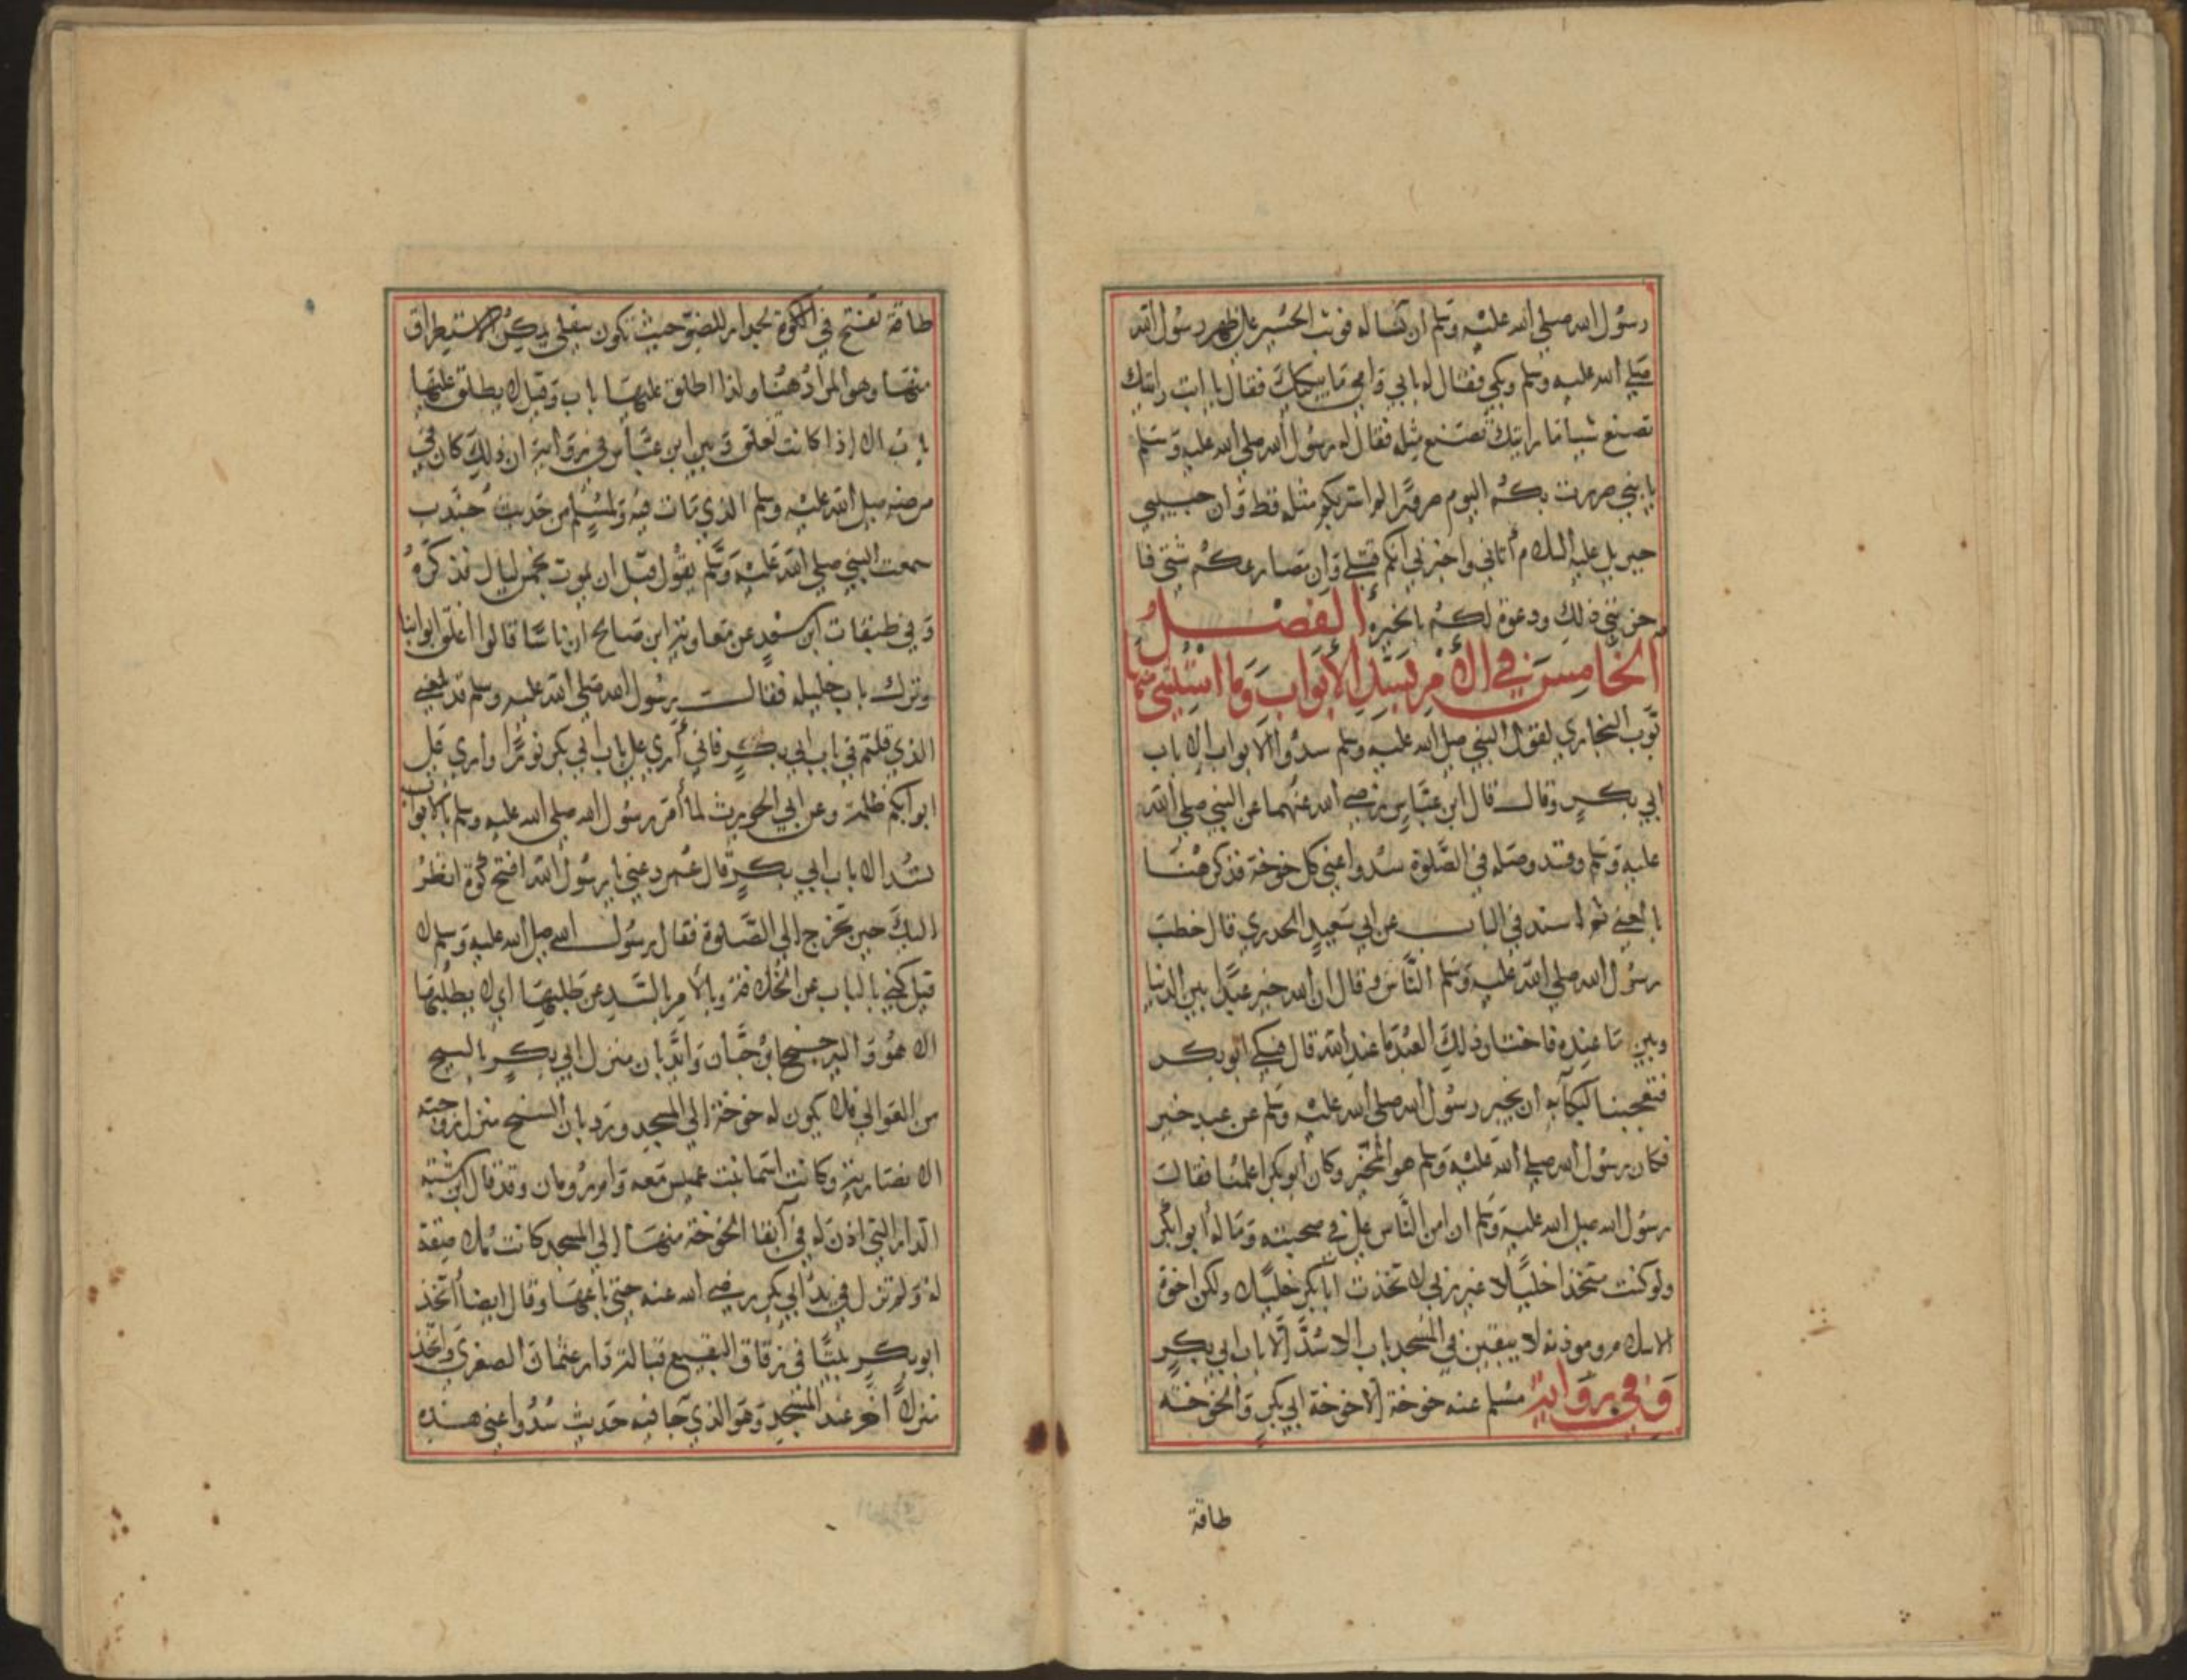 رسول الله صلى الله عليه وسلم ان كساله فوثب الحسين على ظهر رسول الله
صلى الله عليه وسلم وبكى فقال له بابي وامي ما يبكيك فقال يا ابت رايتك
تصنع شيا ما رايتك تصنع مثله فقال له رسول الله صلى الله عليه وسلم
يا بني سررت بكم اليوم سرورا لم اسر بكم مثله قط وان حبيبي
جبريل عليه السلام اتاني واخبرني انكم قتلى وان مصارعكم شتى فا
حزنني ذلك ودعوة لكم بالخيره الفصل
الخامس في الأمر بسد الأبواب وما استثني منها
بوب البخاري لقول النبي صلى الله عليه وسلم سدوا الابواب الا باب
ابي بكر وقال قال ابن عباس رضي الله عنهما عن النبي صلى الله
عليه وسلم وقد وصله في الصلوة سدوا عني كل خوخة فذكر هنا
بالمعنى ثم اسند في الباب عن ابي سعيد الخدري قال خطب
رسول الله صلى الله عليه وسلم الناس وقال ان الله خير عبدا بين الدنيا
وبين ما عنده فاختار ذلك العبد ما عند الله قال فبكى ابو بكر
فتعجبنا لبكآيه ان يخبر رسول الله صلى الله عليه وسلم عن عبد خير
فكان رسول الله صلى الله عليه وسلم هو المخير وكان ابو بكر اعلمنا فقال
رسول الله صلى الله عليه وسلم ان امن الناس علي في صحبته وماله ابو بكر
ولو كنت متخذا خليلا غير ربي لاتخذت ابا بكر خليلا ولكن اخوة
الاسلام ومودته لا يبقين في المسجد باب الا سد الا باب ابي بكر
وفي رواية مسلم عنه خوخة الا خوخة ابي بكر والخوخة
طاقة
طاقة تفتح في الكوة لجدار للضو حيث تكون سفلى يمكن الاستطراق
منها وهو المراد هنا ولذا اطلق عليها باب وقيل لا يطلق عليها
باب الا اذا كانت تغلق وبين ابن عباس في رواية ان ذلك كان في
مرضه صلى الله عليه وسلم الذي مات فيه ولمسلم من حديث جندب
سمعت النبي صلى الله عليه وسلم يقول قبل ان يموت بخمس ليال فذكره
وفي طبقات ابن سعد عن معاوية ابن صالح ان ناسا قالوا اغلق ابوابنا
وترك باب خليله فقال رسول الله صلى الله عليه وسلم قد بلغني
الذي قلتم في باب ابي بكر فاني أرى على باب ابي بكر نورا وارى على
ابوابكم ظلمة وعن ابي الحويرث لما أمر رسول الله صلى الله عليه وسلم بالابواب
تسد الا باب ابي بكر قال عمر دعني يا رسول الله افتح كوة انظر
اليك حين تخرج الى الصلوة فقال رسول الله صلى الله عليه وسلم لا
قيل كنى بالباب عن الخلافة وبالأمر بالسد عن طلبها اي لا يطلبها
الا هو واليه جنح ابن حبان وأيد بان منزل ابي بكر بالسنح
من العوالي فلا يكون له خوخة الى المسجد ورد بان السنح منزل زوجته
الانصارية وكانت اسما بنت عميس معه وام رومان وقد قال ابن شبة
الدار التي اذن له في ابقا الخوخة منها الى المسجد كانت ملاصقة
له ولم تزل في يد ابي بكر رضي الله عنه حتى باعها وقال ايضا أتخذ
ابو بكر بيتا في زقاق البقيع قبالة دار عثمان الصغرى واتخذ
منزلا آخر عند المسجد وهو الذي جا فيه حديث سدوا عني هذه